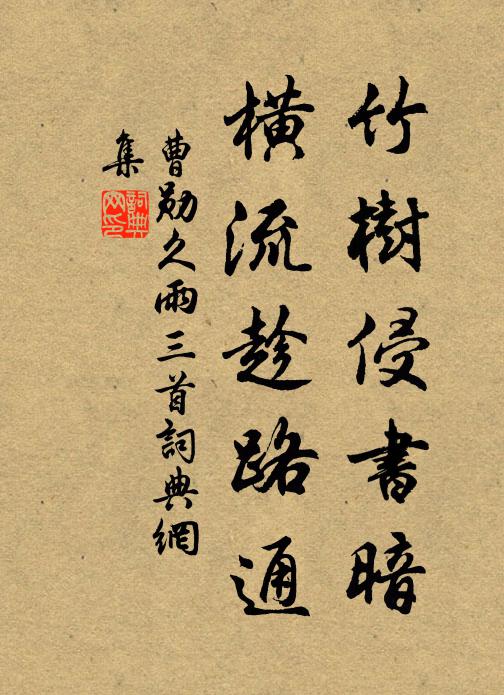 竹樹侵書暗
橫流趁路通
曹勛久雨三首詞典網
集
詞典
网印